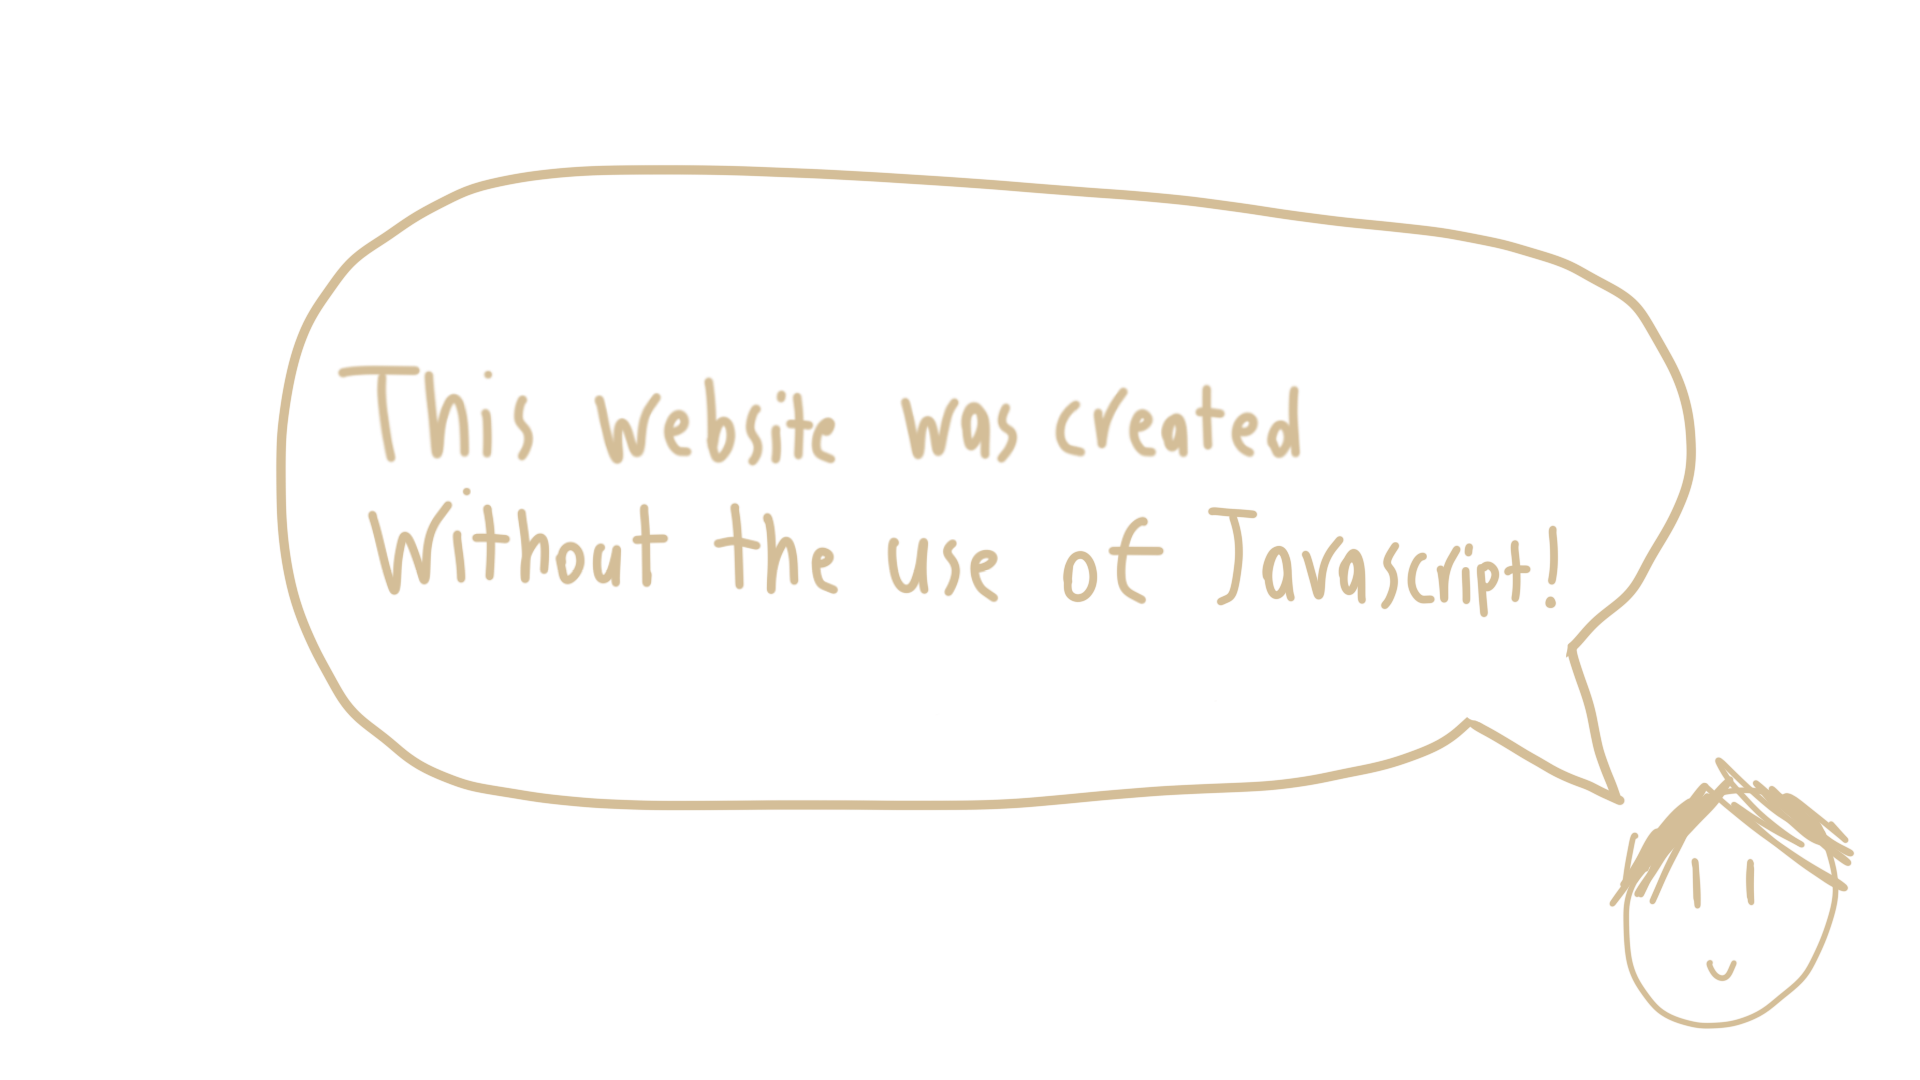 This website was created
Without the use of Javascript!